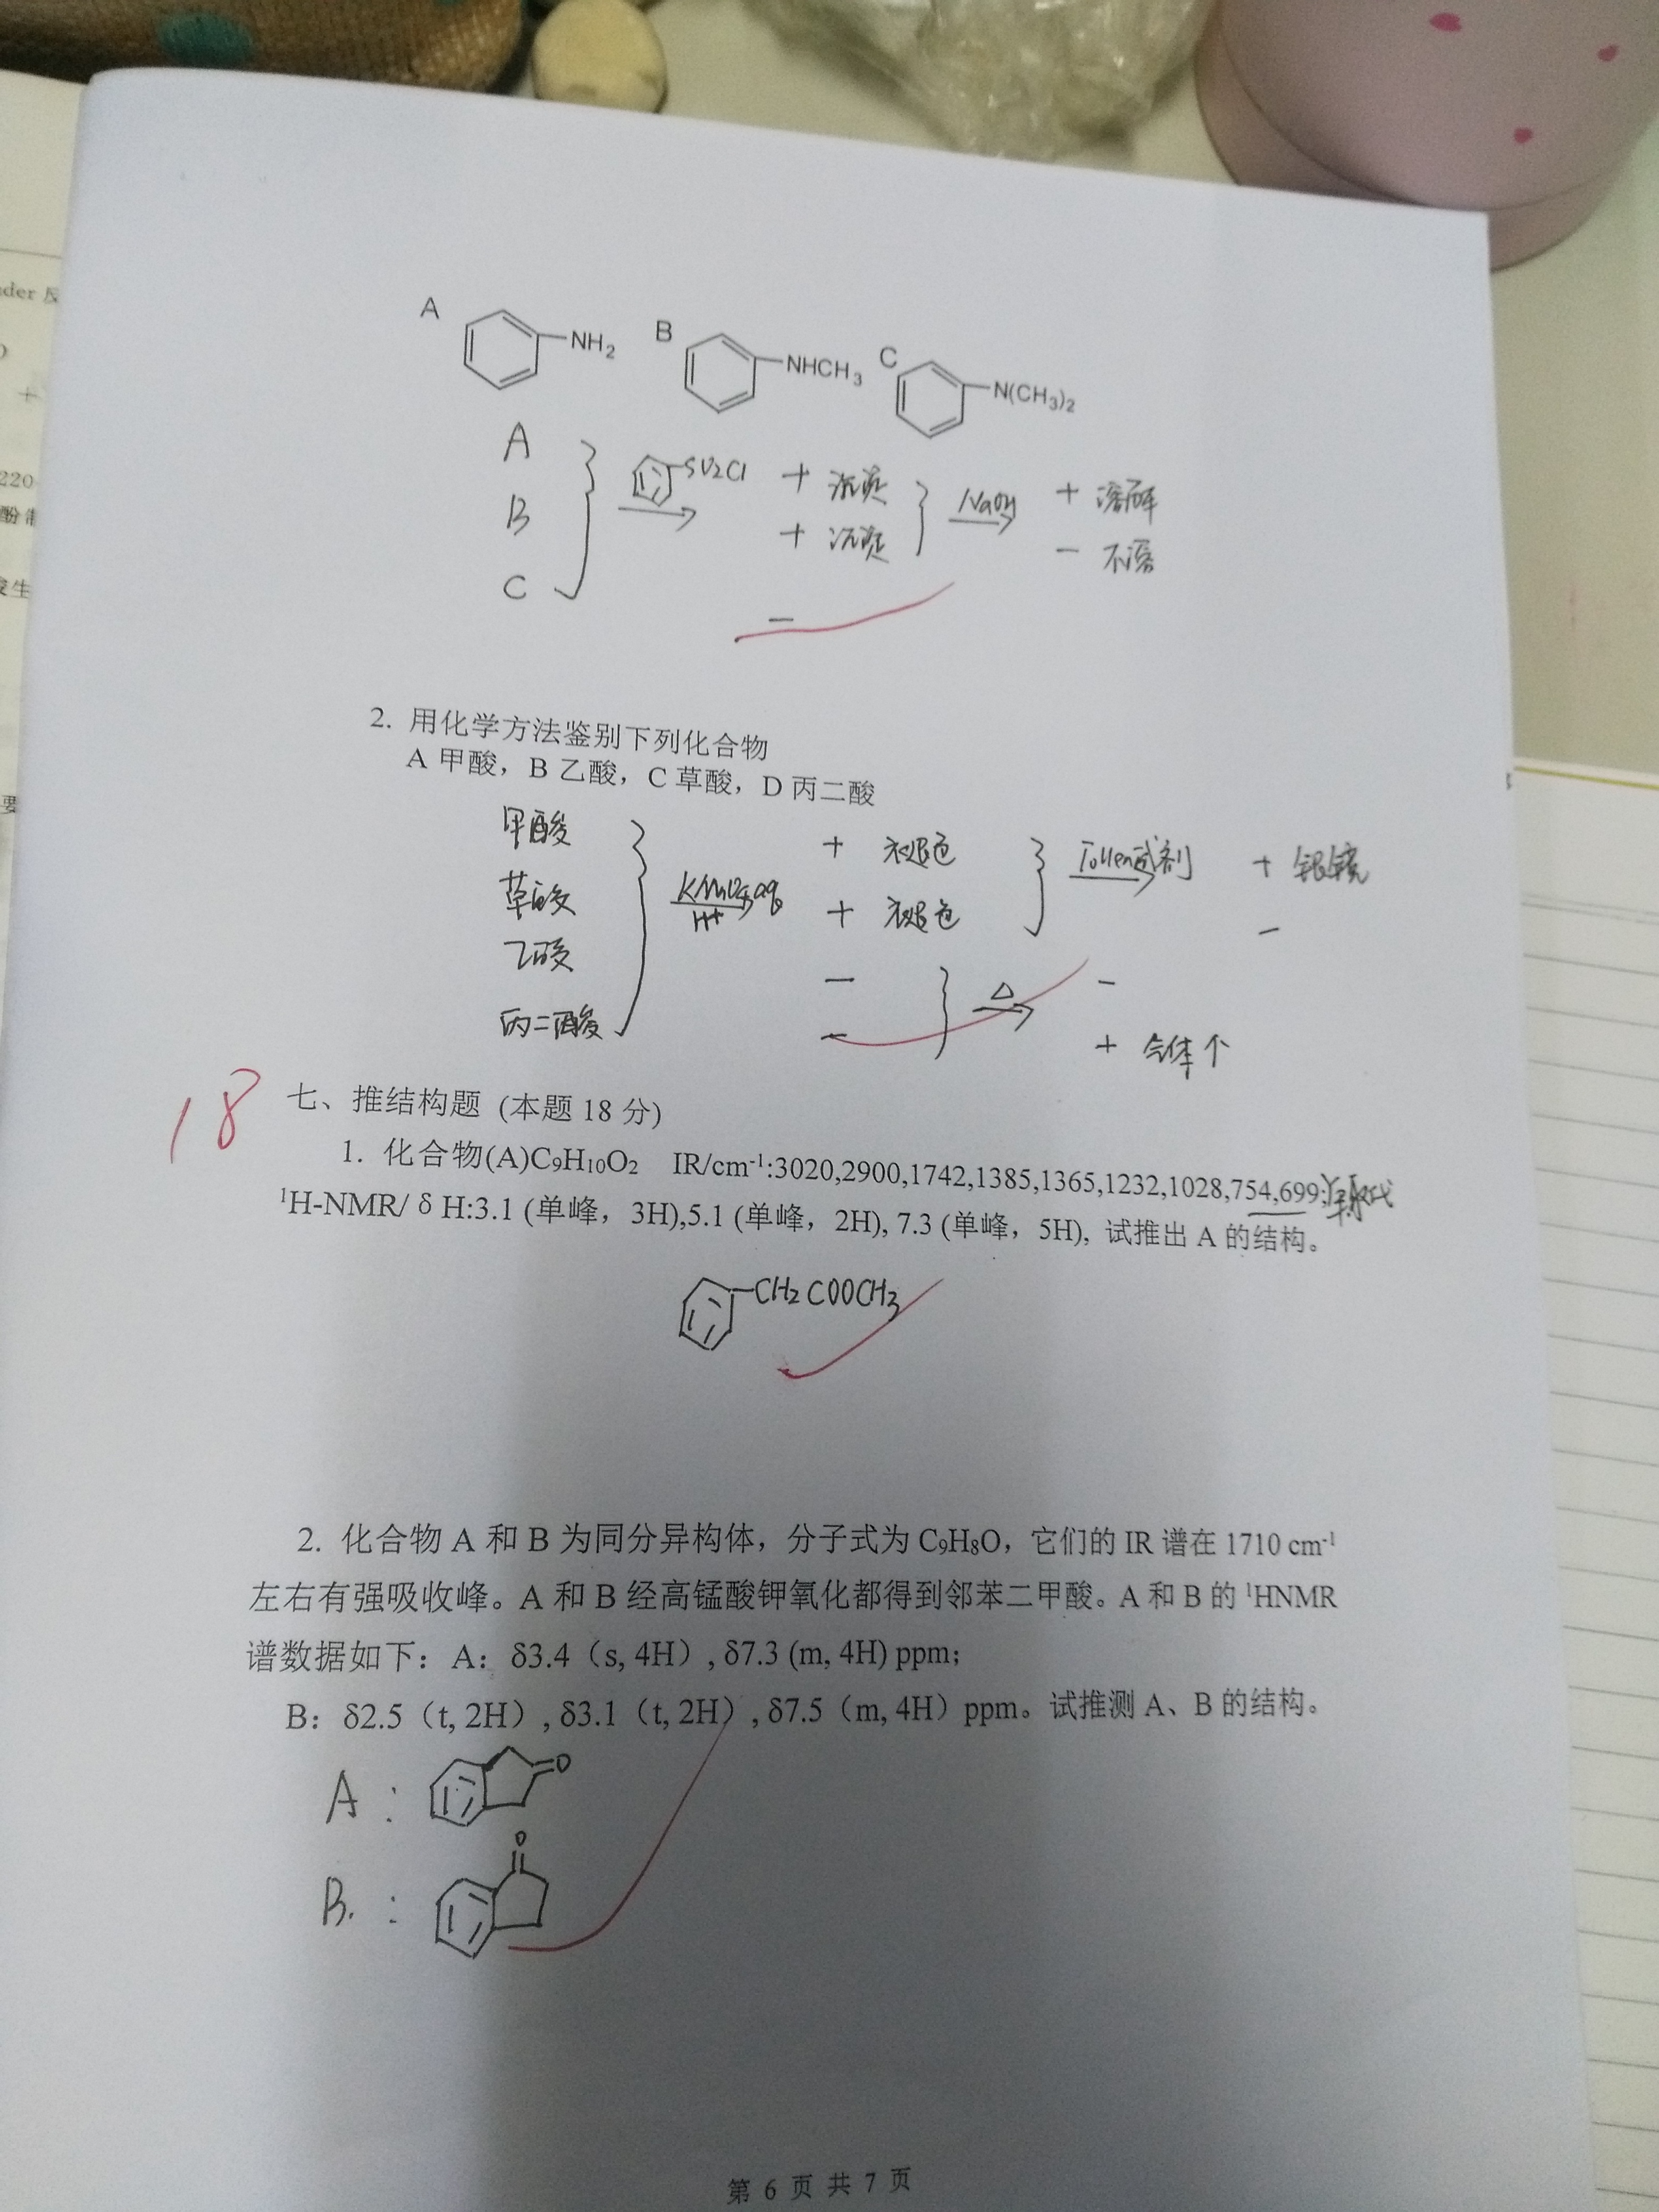 A
NH2
B
NHCH3
C
N(CH3)2
A
B
C
SO2Cl
+ 沉淀
+ 沉淀
−
NaOH
+ 溶解
− 不溶
2. 用化学方法鉴别下列化合物
A 甲酸，B 乙酸，C 草酸，D 丙二酸
甲酸
草酸
乙酸
丙二酸
KMnO4,aq
H+
+ 褪色
+ 褪色
−
−
Tollen试剂
+ 银镜
−
△
−
+ 气体↑
18
七、推结构题 (本题 18 分)
1. 化合物(A)C9H10O2 IR/cm-1:3020,2900,1742,1385,1365,1232,1028,754,699; 单取代
1H-NMR/ δ H:3.1 (单峰，3H),5.1 (单峰，2H), 7.3 (单峰，5H), 试推出 A 的结构。
CH2COOCH3
2. 化合物 A 和 B 为同分异构体，分子式为 C9H8O，它们的 IR 谱在 1710 cm-1
左右有强吸收峰。A 和 B 经高锰酸钾氧化都得到邻苯二甲酸。A 和 B 的 1HNMR
谱数据如下：A：δ3.4（s, 4H）, δ7.3 (m, 4H) ppm；
B：δ2.5（t, 2H）, δ3.1（t, 2H）, δ7.5（m, 4H）ppm。试推测 A、B 的结构。
A :
O
B. :
O
第 6 页 共 7 页
der 反
+
220
酚制
发生
要